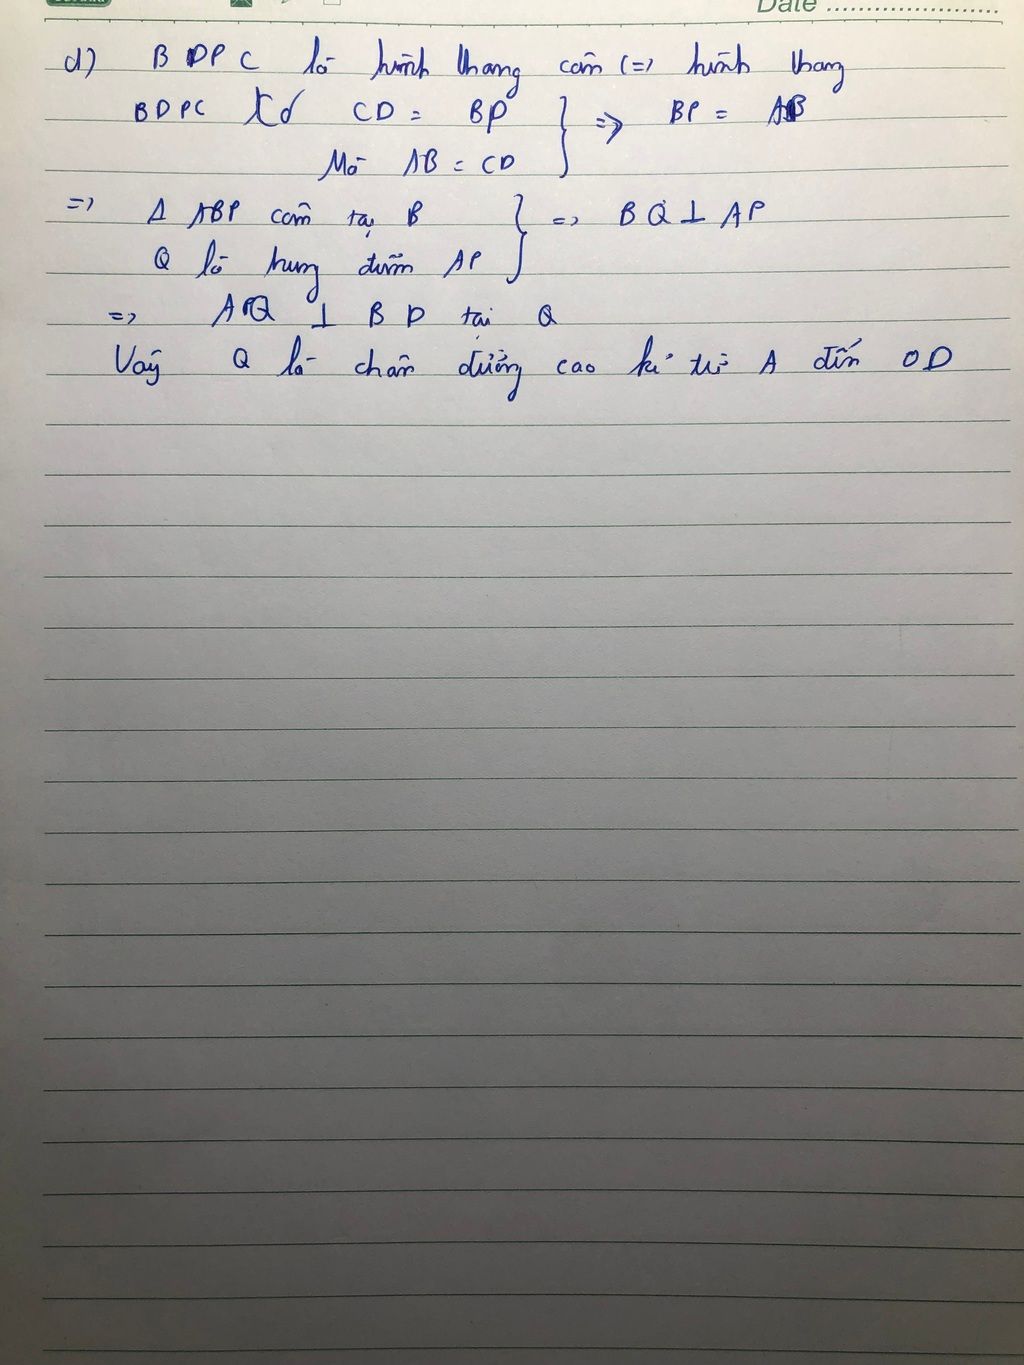 Date
d) BDPC là hình thang cân <=> hình thang
BDPC có CD = BP
=> BP = AB
Mà AB = CD
=> Δ ABP cân tại B
=> BQ ⊥ AP
Q là trung điểm AP
=> AQ ⊥ BD tại Q
Vậy Q là chân đường cao kẻ từ A đến OD